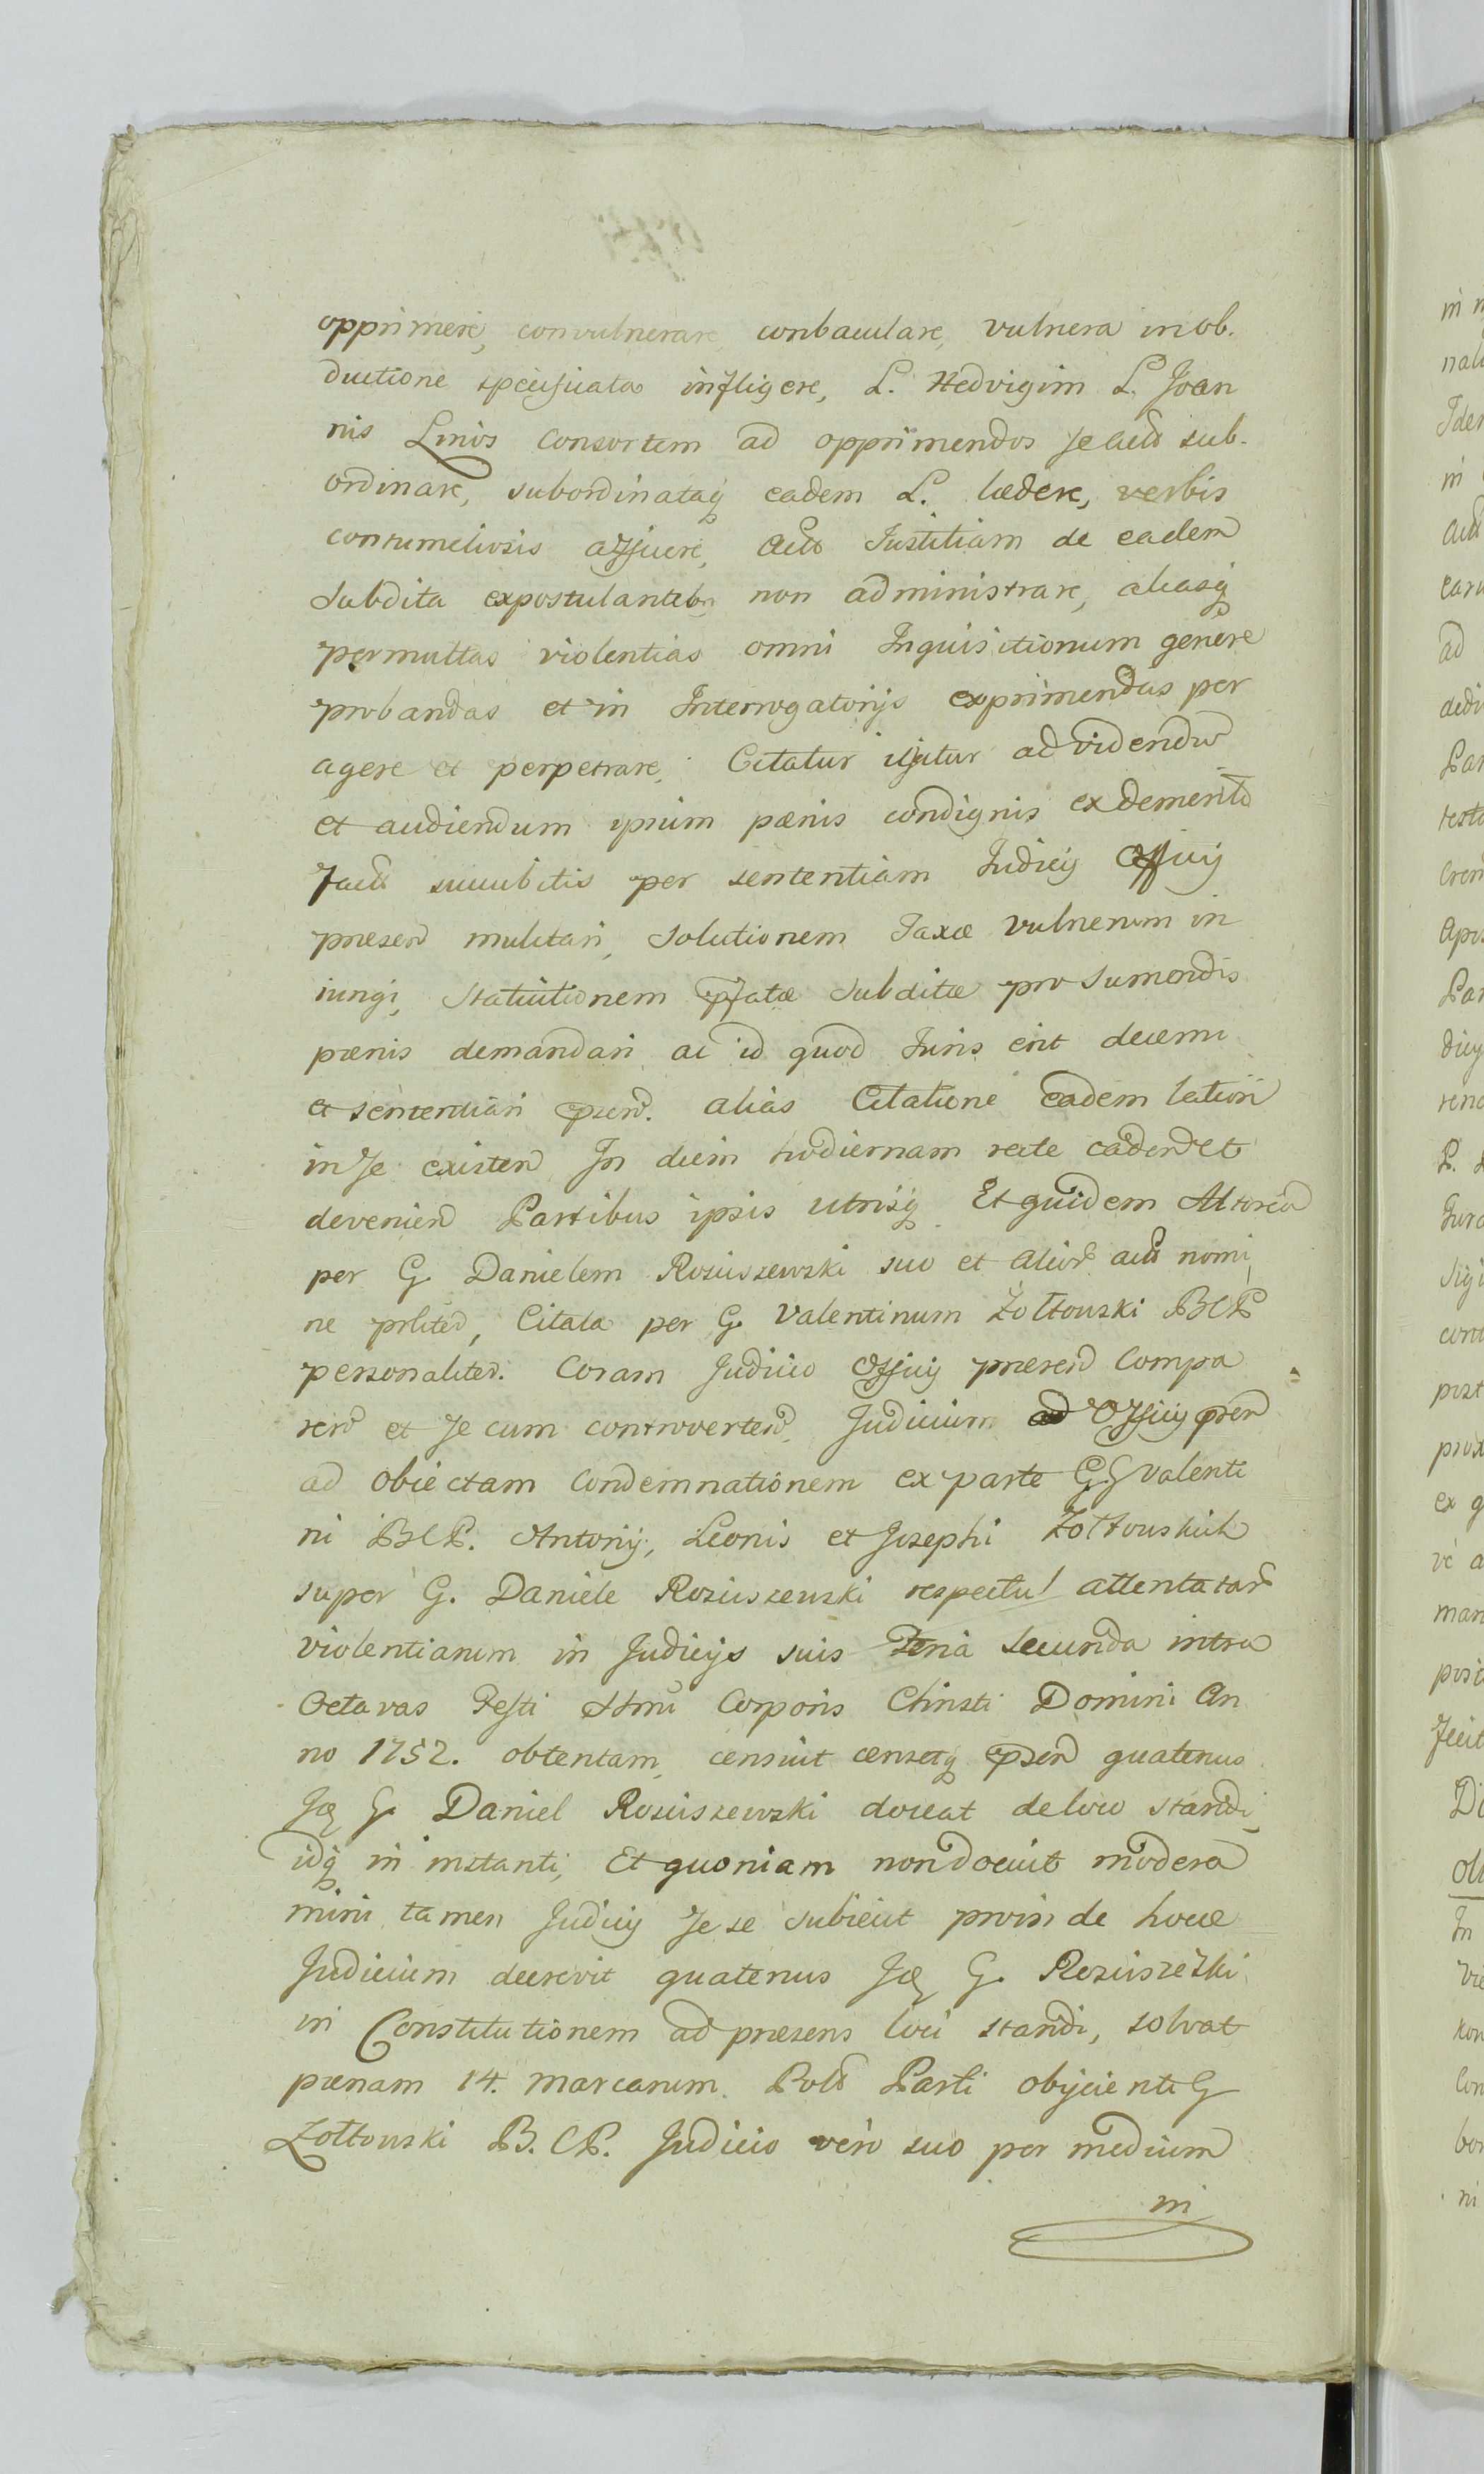 opprimere, convulnerare, conbaculare, vulnera in ob-
ductione specificata infligere, L. Hedvigim L. Joan
nis Linos Consortem ad opprimendos se actt sub-
ordinare, subordinataq eadem L. lædere, verbis
contumeliosis afficere, actt Justitiam de eadem
Subdita expostulantibs non administrare, aliasq
permultas violentias omni Inquisitionum genere
probandas et in Interrogatorijs exprimendas per
agere et perpetrare, Citatur igitur ad videndu
et audiendum ipsum pænis condignis ex demerito
facti succubitis per sententiam Judicij Officij
præsen mulctari, Solutionem Taxæ vulnerum in
iungi, Statuitionem pfatæ Subditæ pro Sumendis
pænis demandari ac id quod Juris erit decerni
et sententiari psen. alias Citatione eadem latiori
in se existen In diem hodiernam recte caden et
devenien Partibus ipsis utrisq. Et quidem Actorea
per G. Danielem Rosciszewski suo et alior actt nomi
ne prliter, Citata per G. Valentinum Zołtowski BCP
personaliter. Coram Judicio Officij præsen Compa
ren et se cum controverten. Judicium Officij psen
ad obiectam Condemnationem ex parte GG Valenti
ni BCP. Antonij, Leonis et Josephi Zołtowskich
super G. Daniele Rosciszewski respectu attentatar
violentiarum in Judicijs suis Feria secunda intra
Octavas Festi Sttmi Corporis Christi Domini An
no 1752. obtentam, censuit censetq psen quatenus
Idq G. Daniel Rosciszewski doceat de loco standi,
idq in instanti, Et quoniam non docuit modera
mini tamen Judicij sese subiecit proinde hocce
Judicium decrevit quatenus Idq G. Rosciszewski
in Constitutionem ad præsens loci standi, solvat
pænam 14. marcarum Poltt Parti obijcienti G
Zołtowski B.CP. Judicio vero suo per medium
ni